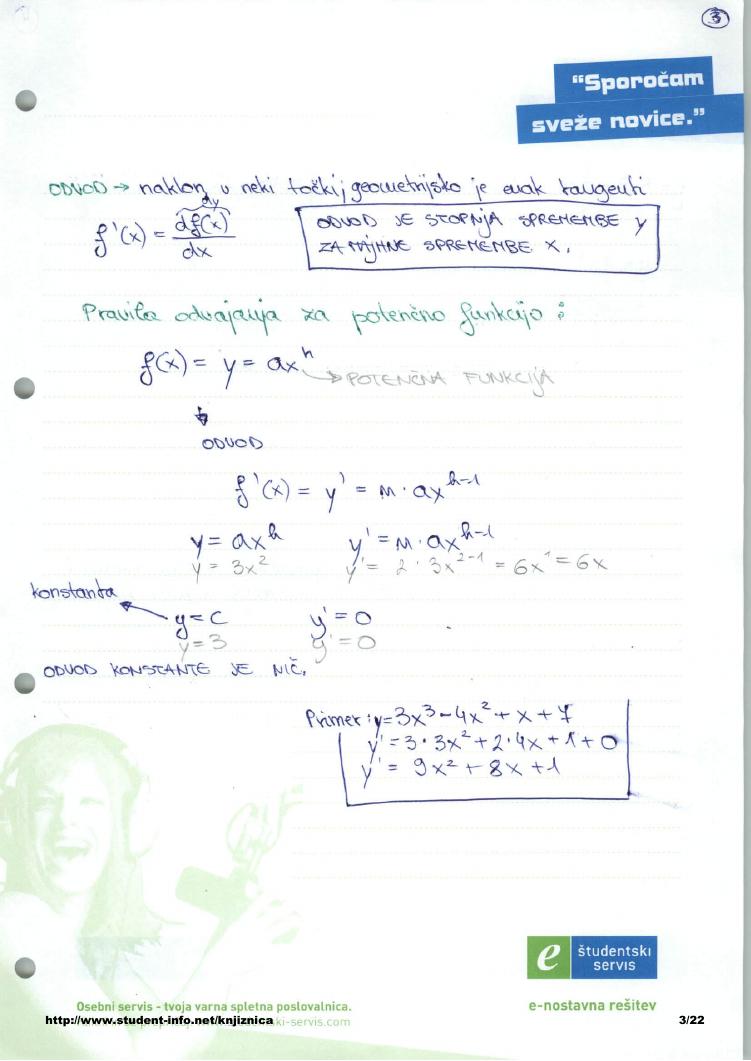 3
“Sporočam
sveže novice.”
ODVOD → naklon v neki točki; geometrijsko je enak tangenti
dy
f'(x) = df(x)/dx
ODVOD JE STOPNJA SPREMEMBE y
ZA MAJHNE SPREMEMBE X.
Pravila odvajanja za potenčno funkcijo:
f(x) = y = ax^n
→ POTENČNA FUNKCIJA
↓
ODVOD
f'(x) = y' = n · ax^n-1
y = ax^n y' = n · ax^n-1
y = 3x² y' = 2 · 3x^2-1 = 6x^1 = 6x
konstanta
y = C y' = 0
y = 3 y' = 0
ODVOD KONSTANTE JE NIČ.
Primer: y = 3x³ - 4x² + x + 7
y' = 3 · 3x² + 2 · 4x + 1 + 0
y' = 9x² + 8x + 1
e študentski
servis
Osebni servis - tvoja varna spletna poslovalnica.
e-nostavna rešitev
http://www.student-info.net/knjiznica
ki-servis.com
3/22